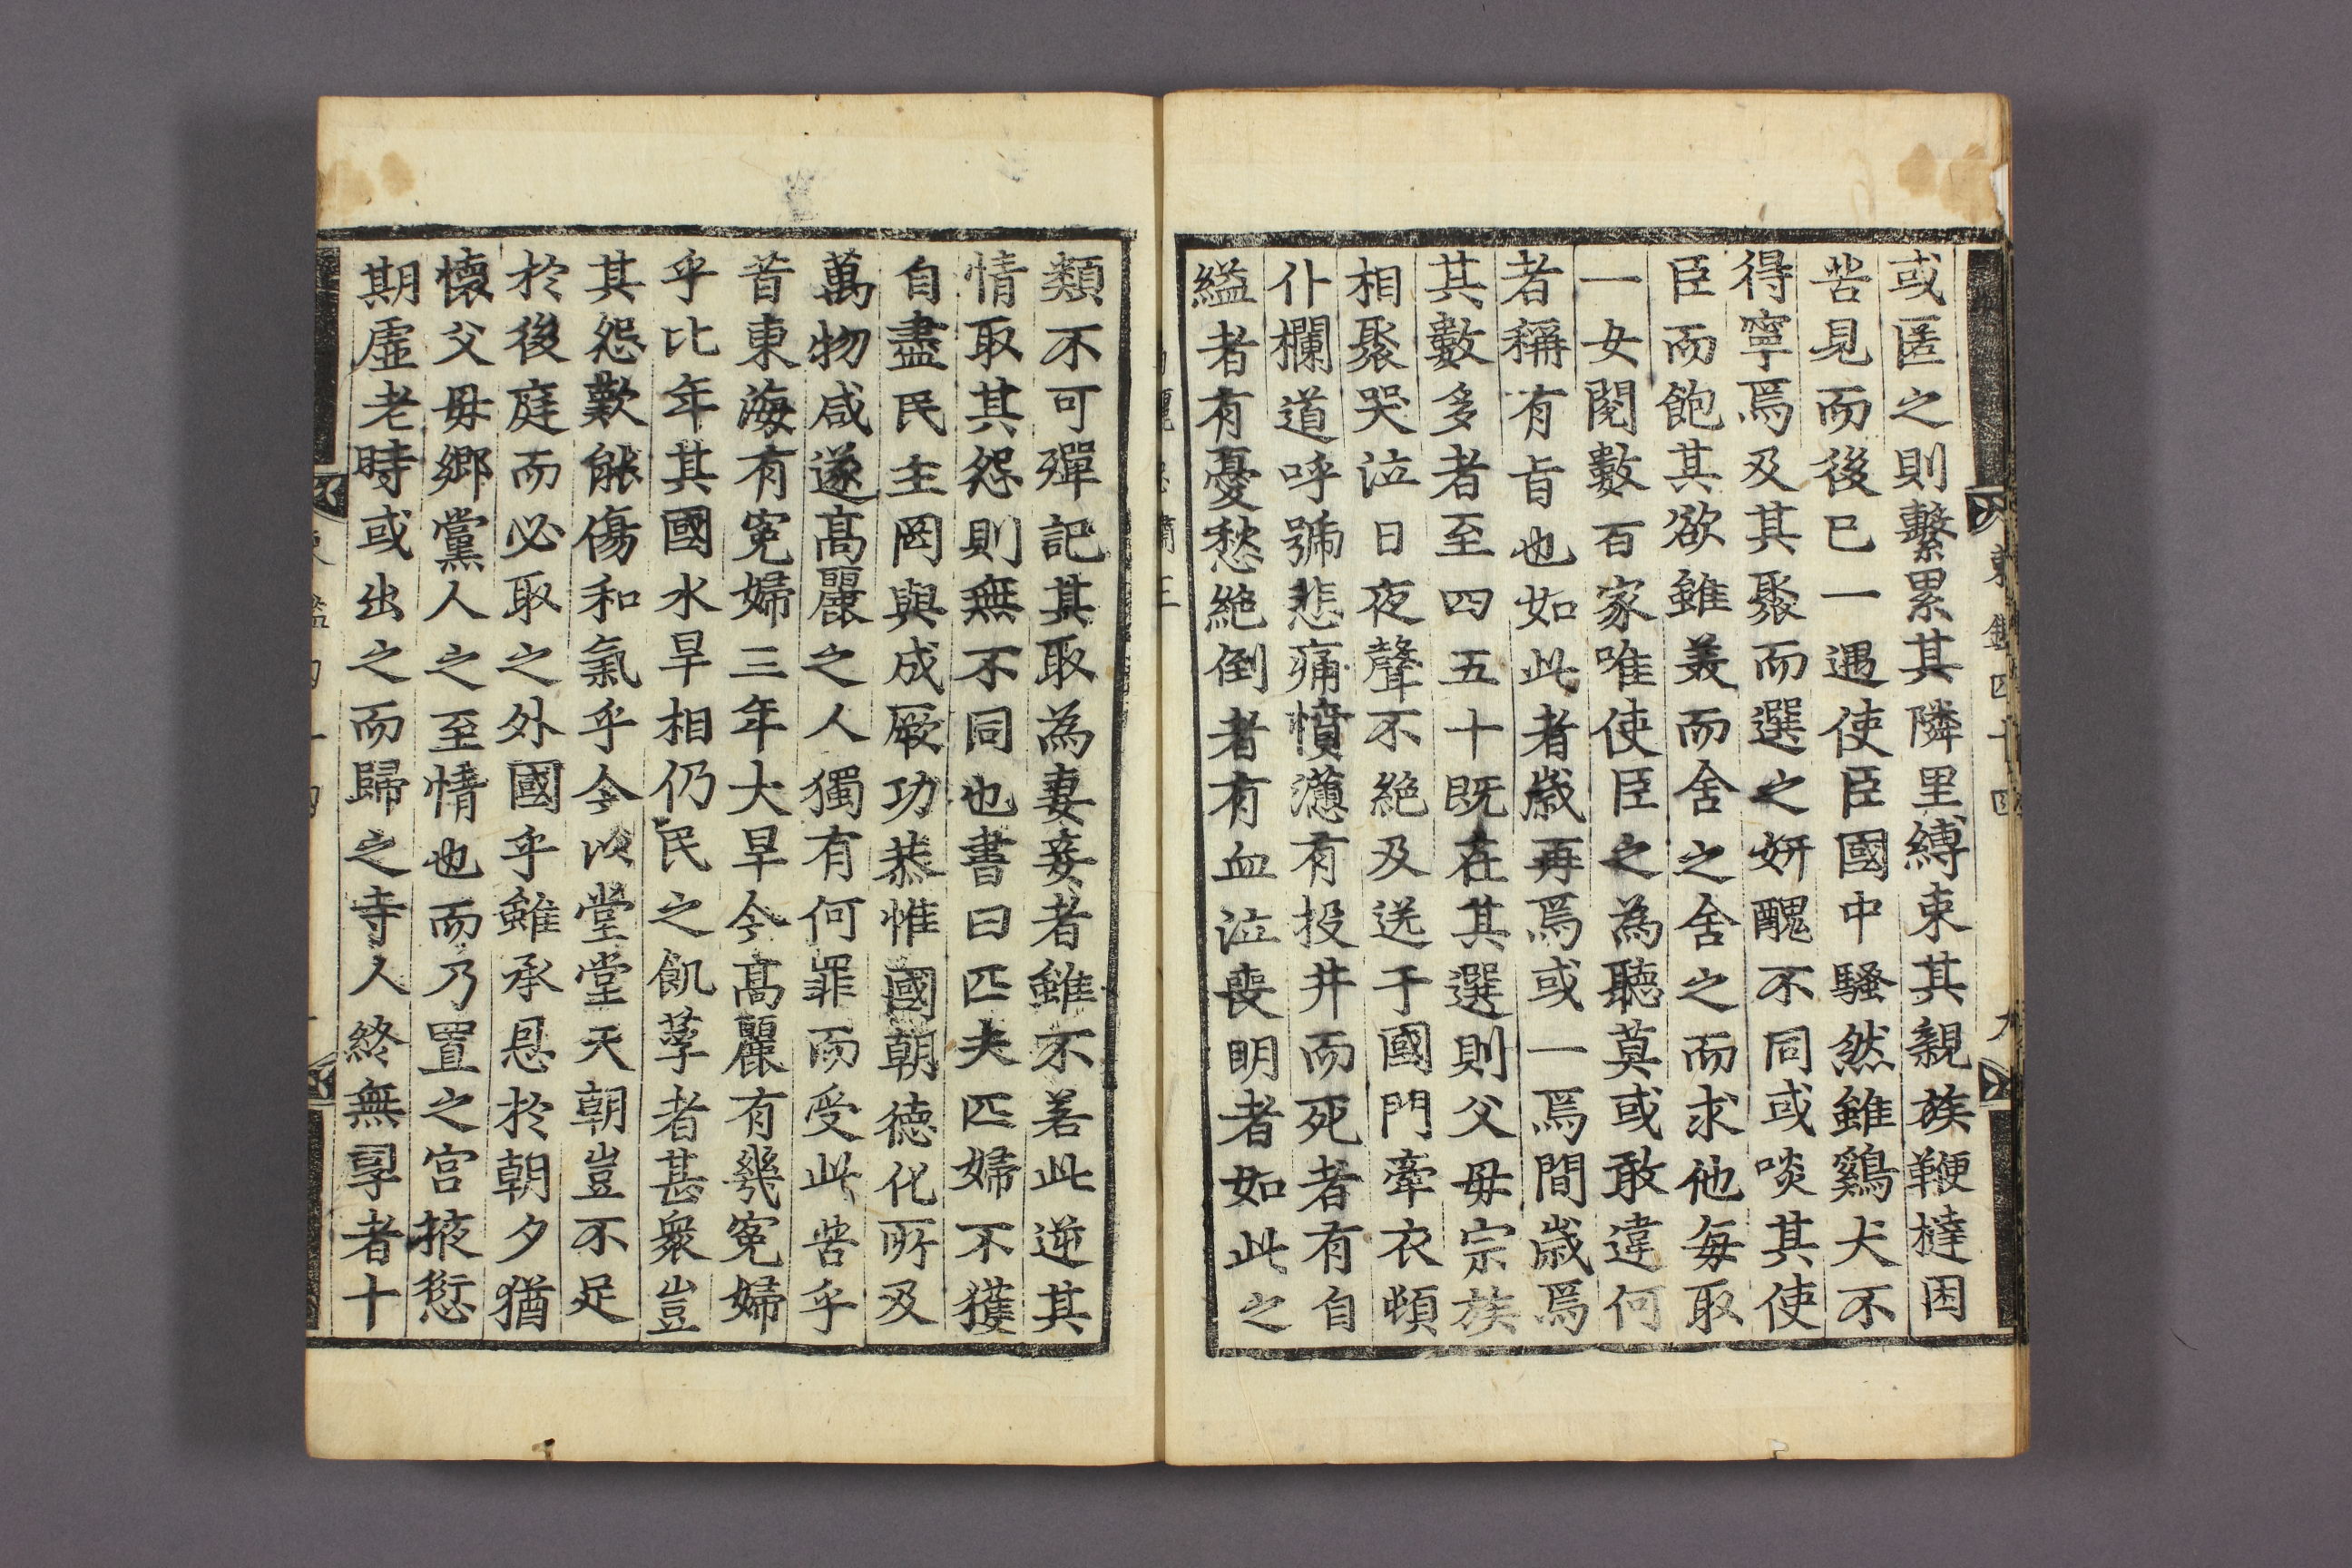 東鑑四十四
九
或匿之則繫累其隣里縛束其親族鞭撻困
苦見而後已一遇使臣國中騷然雖鷄犬不
得寧焉及其聚而選之姸醜不同或啖其使
臣而飽其欲雖美而舍之舍之而求他每取
一女閱數百家唯使臣之為聽莫或敢違何
者稱有旨也如此者歲再焉或一焉間歲焉
其數多者至四五十旣在其選則父母宗族
相聚哭泣日夜聲不絶及送于國門牽衣頓
仆欄道呼號悲痛憤懣有投井而死者有自
縊者有憂愁絶倒者有血泣喪明者如此之
類不可殫記其取為妻妾者雖不若此逆其
情取其怨則無不同也書曰匹夫匹婦不獲
自盡民主罔與成厥功恭惟國朝德化所及
萬物咸遂高麗之人獨有何罪而受此苦乎
昔東海有寃婦三年大旱今高麗有幾寃婦
乎比年其國水旱相仍民之飢莩者甚衆豈
其怨歎能傷和氣乎今以堂堂天朝豈不足
於後庭而必取之外國乎雖承恩於朝夕猶
懷父母鄉黨人之至情也而乃置之宮掖愆
期虛老時或出之而歸之寺人終無孕者十